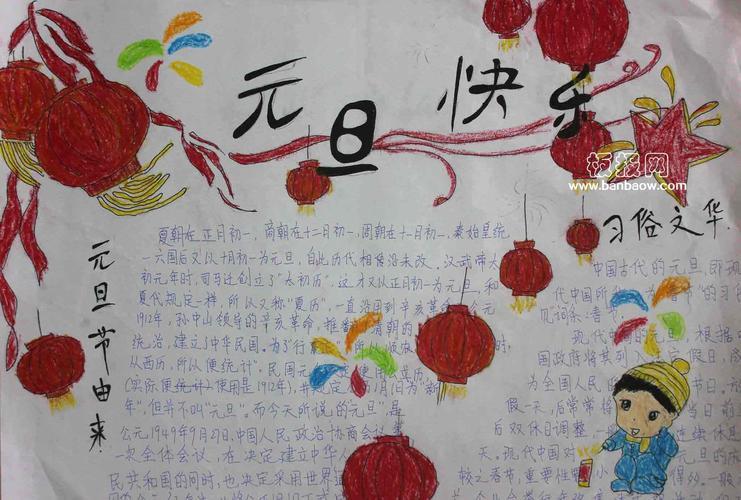 元旦快乐
板报网
www.banbaow.com
习俗文华
元旦节由来
夏朝在正月初一，商朝在十二月初一，周朝在十一月初一，秦始皇统
一六国后又从十月初一为元旦，自此历代相沿没未改。汉武帝太
初元年时，司马迁创立了“太初历”，这才又从正月初一为元旦，和
夏代规定一样，所从又称“夏历”，一直沿国到辛亥革命。公元
1912年，孙中山领导的辛亥革命，推 清朝的
统治，建立了中华民国。为了“行 所从顺农 时，
从西历，所从便统计”，民国元 使 历
(实际便统计使用是1912年)，并规定 月1月(为“新
年”，但并不叫“元旦”。而今天所说的元旦”是
公元1949年9月27日，中国人民政治协商会议第
一次全体会议，在决定建立中华人
民共和国的同时，也决定采用世界通
中国古代的元旦，即现
代中国所 为“春节”的习俗
见词条：春节
现代中国的元旦，根据中
国政府将其列入 定假日，成
为全国人民的 节日。
假一天，后常常将 当日前
后双休日调整 连续休息
天。现代中国对 元旦的庆
较之春节，重要性要小 得多。一般